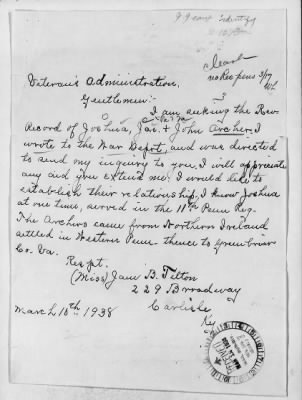 Veteran's Administration,
Gentlemen:-
I am seeking the Rev.
Record of Joshua, Jas. & John Archer. I
wrote to the War Dept. and was directed
to send my inquiry to you. I will appreciate
any aid you extend me. I would like to
establish their relationship. I know Joshua
at one time, served in the 11th Penn Reg.
The Archers came from Northern Ireland
settled in Western Penn. thence to Greenbrier
Co. Va.
Respt.
(Miss) Jane B. Telton
229 Broadway
Carlisle
Ky.
March 10th 1938